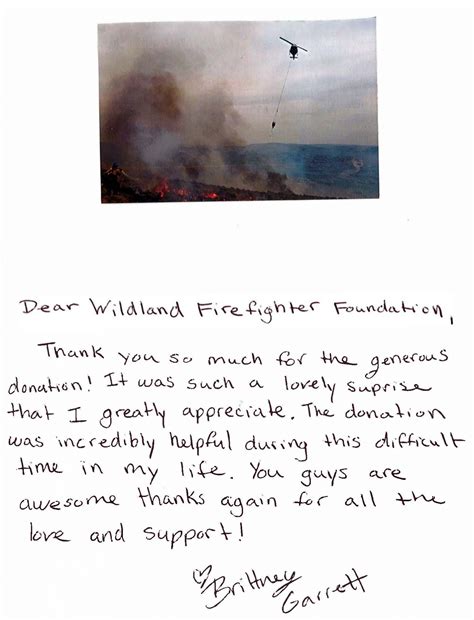 Dear Wildland Firefighter Foundation,
Thank you so much for the generous
donation! It was such a lovely suprise
that I greatly appreciate. The donation
was incredibly helpful during this difficult
time in my life. You guys are
awesome thanks again for all the
love and support!
♡Brittney
Garrett